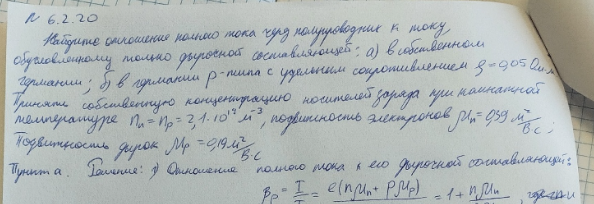 N 6.2.20
Найдите отношение полного тока через полупроводник к току,
обусловленному только дырочной составляющей: а) в собственном
германии; б) в германии p-типа с удельным сопротивлением ρ=0,05 Ом.м.
Принять собственную концентрацию носителей заряда при комнатной
температуре nn = np = 2,1·10¹² м⁻³, подвижность электронов μn = 0,39 м²/В·с;
Подвижность дырок μp = 0,19 м²/В·с
Пункт а. Решение: 1) Отношение полного тока к его дырочной составляющей:
βp = I/I = e(nμn + pμp) = 1 + nμn ,